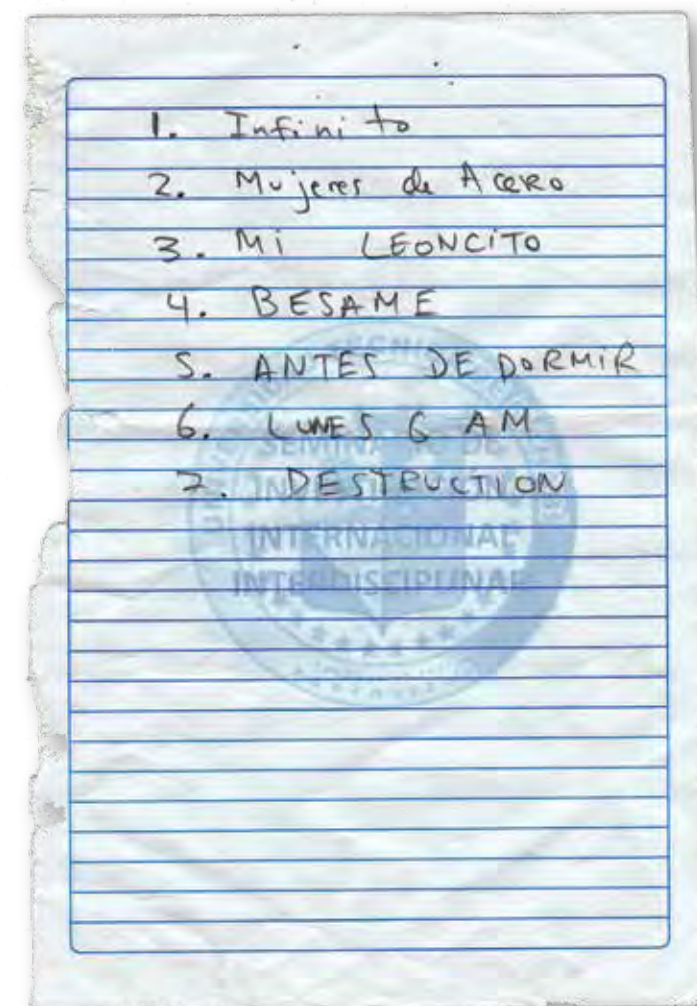 1. Infinito
2. Mujeres de Acero
3. Mi LEONCiTO
4. BESAME
5. ANTES DE DORMiR
6. LUNES 6 AM
7. DESTRUCTION
SEMINARIO DE
INTERNACIONAL
INTERDISCIPLINAR